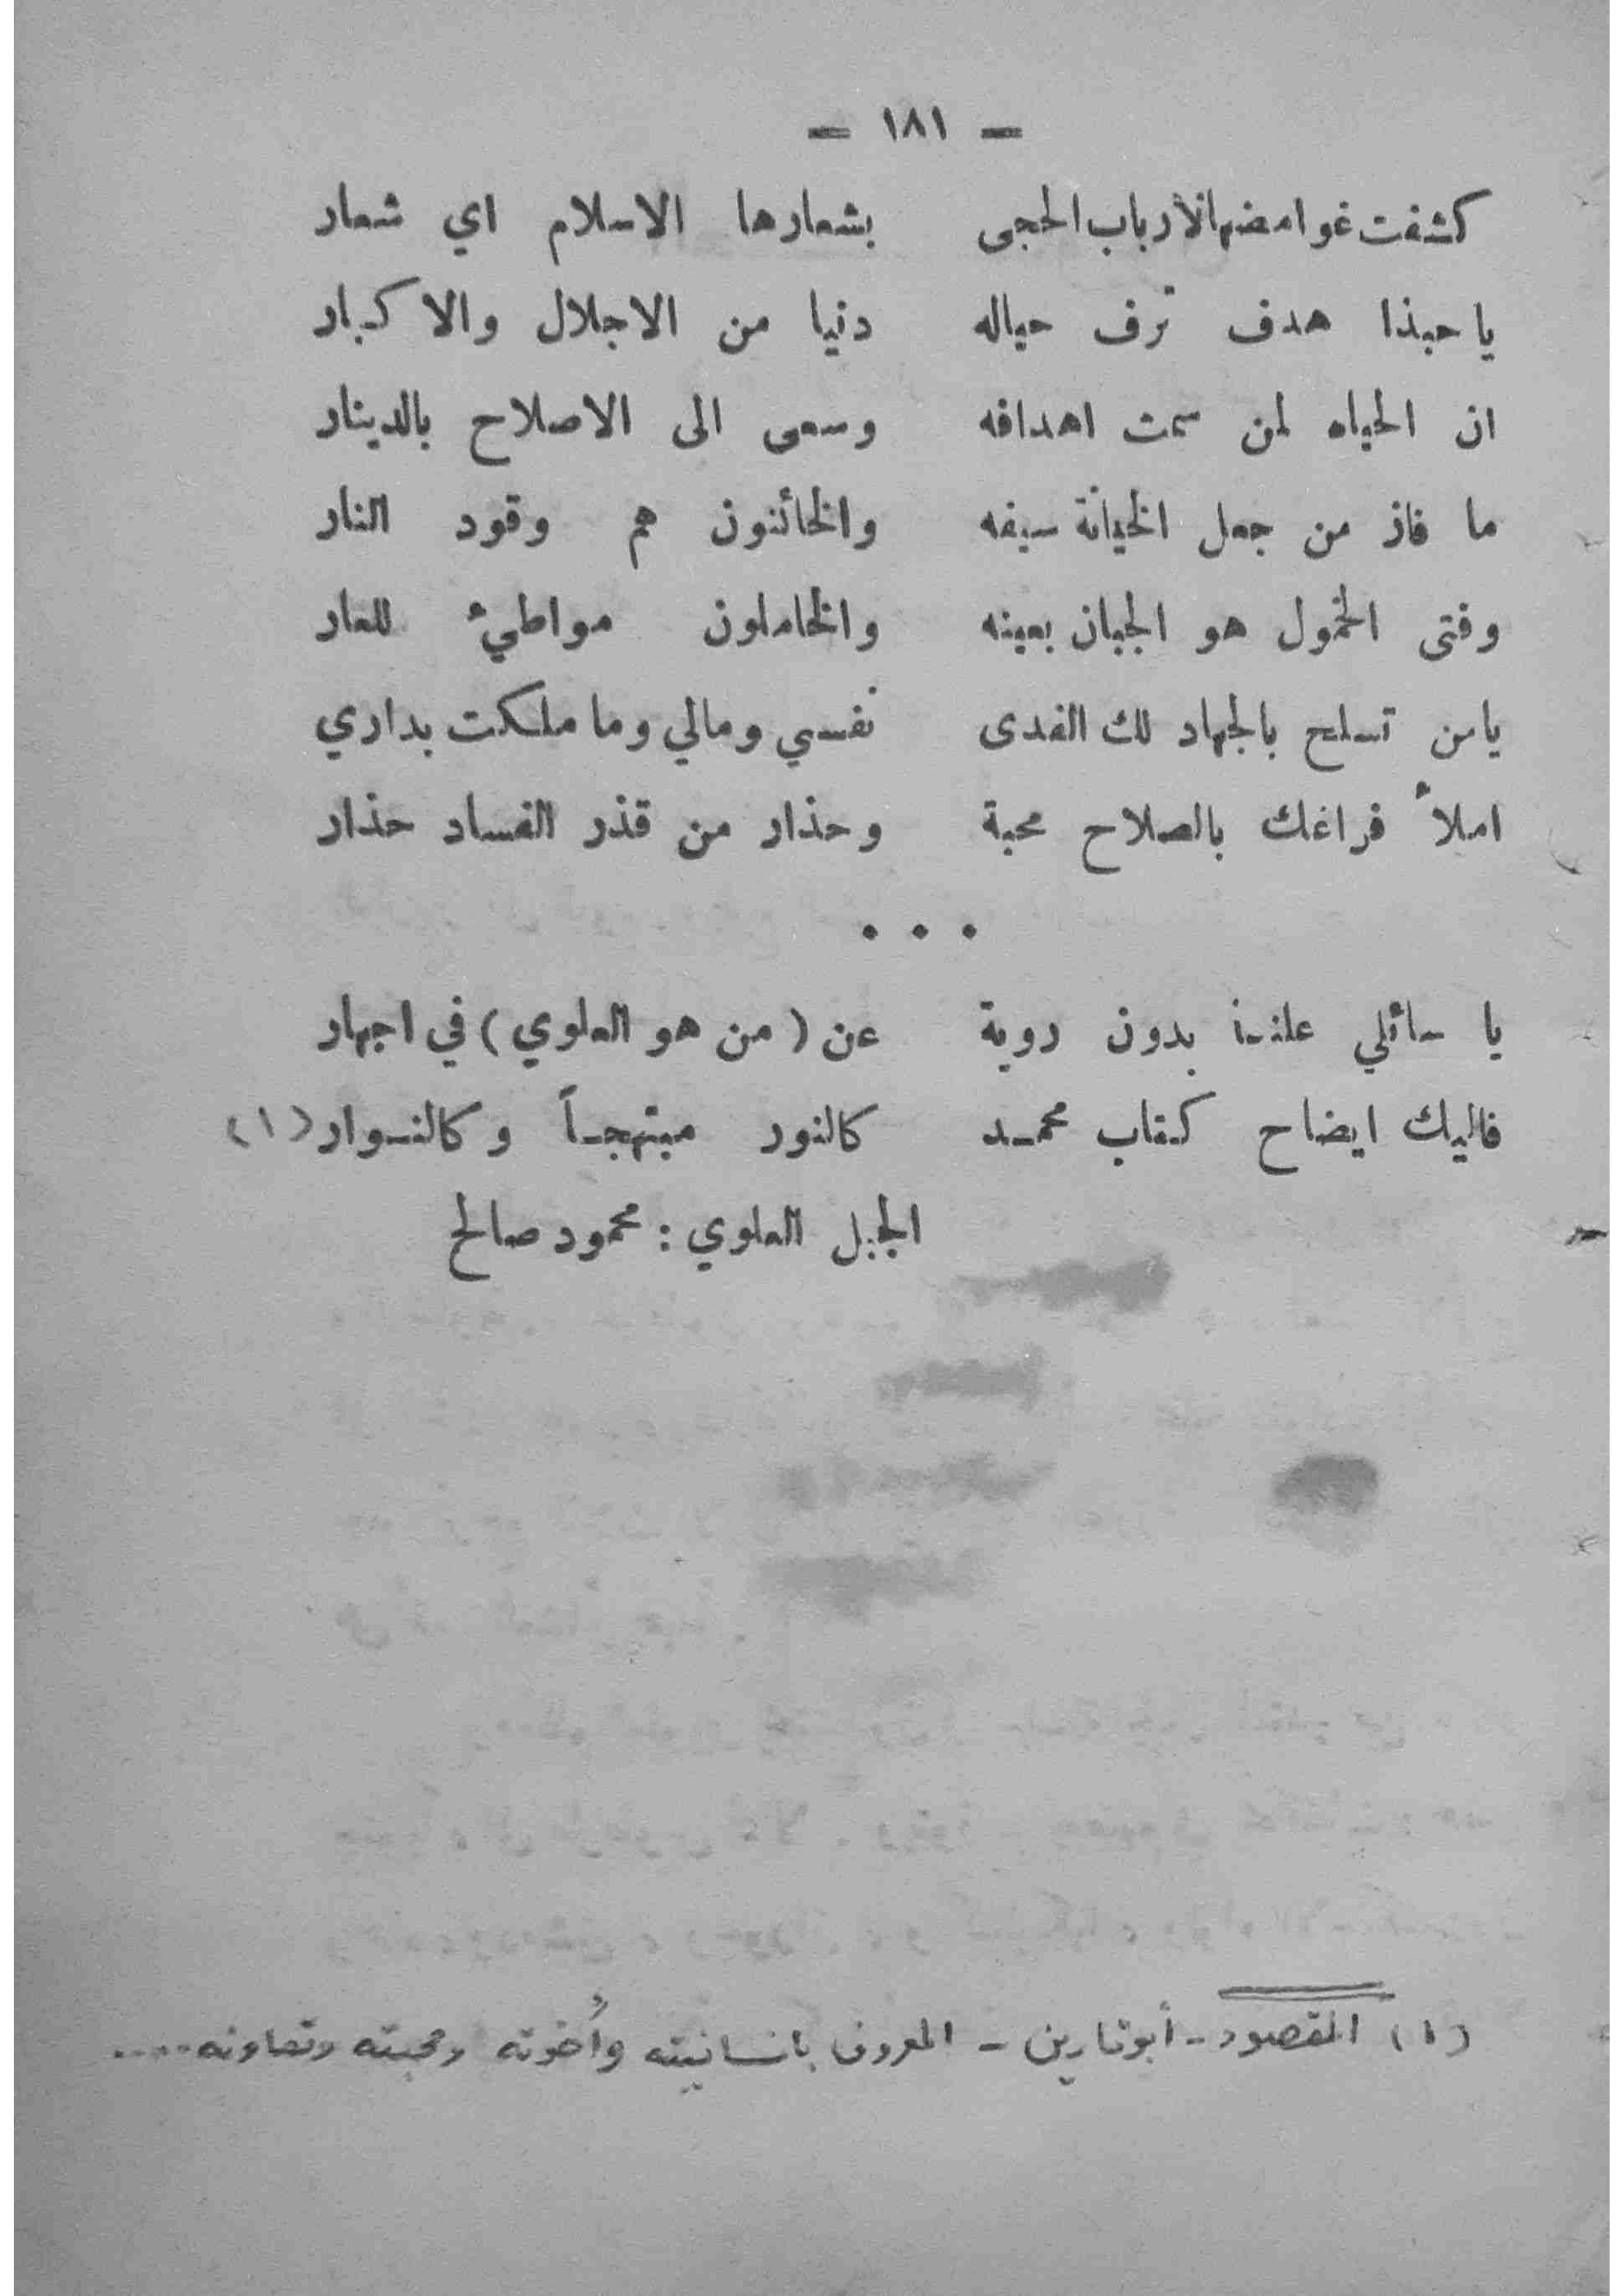 — ١٨١ —
كشفت غوامضها لأرباب الحجى بشعارها الاسلام اي شعار
يا حبذا هدف ترف حياله دنيا من الاجلال والاكبار
ان الحياه لمن سمت اهدافه وسعى الى الاصلاح بالدينار
ما فاز من جعل الخيانة سيفه والخائنون هم وقود النار
وفتى الخمول هو الجبان بعينه والخاملون مواطيء للعار
يامن تسلح بالجهاد لك الفدى نفسي ومالي وما ملكت بداري
املأ فراغك بالصلاح محبة وحذار من قذر الفساد حذار
• • •
يا سائلي علناً بدون روية عن ( من هو العلوي ) في اجهار
فاليك ايضاح كتاب محمد كالنور مبتهجاً وكالنوار (١)
الجبل العلوي : محمود صالح
(١) المقصود - أبو نارين - المعروف بانسانيته وأخوته ومحبته وتعاونه ....